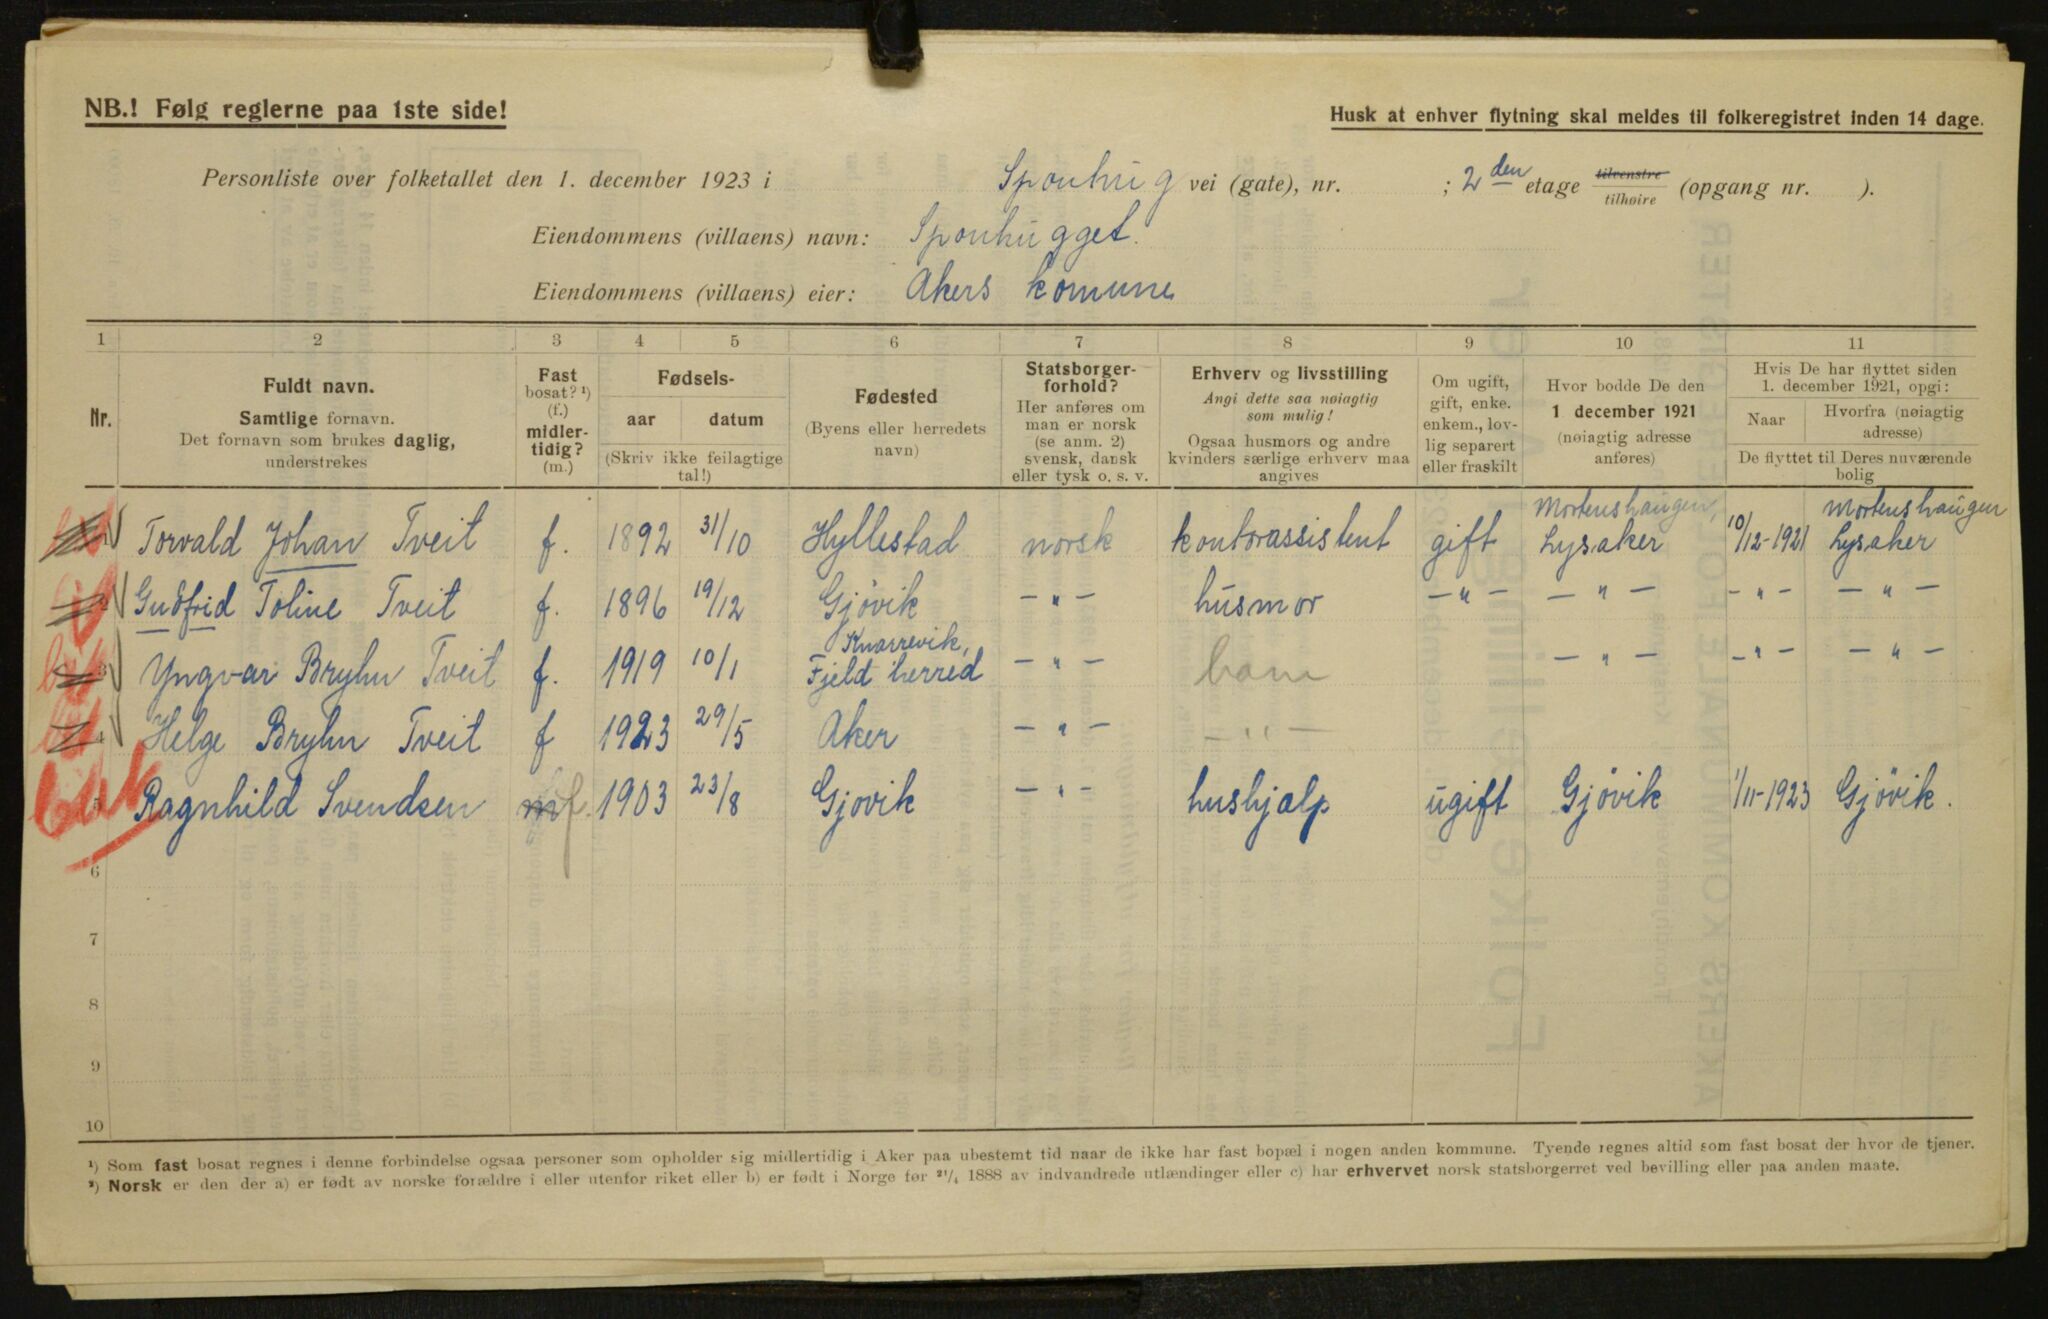 NB.! Følg reglerne paa 1ste side!
Husk at enhver flytning skal meldes til folkeregistret inden 14 dage.
Personliste over folketallet den 1. december 1923 i Sponhug vei (gate), nr. ; 2den etage tilvenstre tilhøire (opgang nr. ).
Eiendommens (villaens) navn: Sponhugget.
Eiendommens (villaens) eier: Akers komune
1 2 3 4 5 6 7 8 9 10 11
Nr.
Fuldt navn.
Samtlige fornavn.
Det fornavn som brukes daglig,
understrekes
Fast
bosat? ¹)
(f.)
midler-
tidig?
(m.)
Fødsels-
aar datum
(Skriv ikke feilagtige
tal!)
Fødested
(Byens eller herredets
navn)
Statsborger-
forhold?
Her anføres om
man er norsk
(se anm. 2)
svensk, dansk
eller tysk o. s. v.
Erhverv og livsstilling
Angi dette saa nøiagtig
som mulig!
Ogsaa husmors og andre
kvinders særlige erhverv maa
angives
Om ugift,
gift, enke.
enkem., lov-
lig separert
eller fraskilt
Hvor bodde De den
1 december 1921
(nøiagtig adresse
anføres)
Hvis De har flyttet siden
1. december 1921, opgi:
Naar Hvorfra (nøiagtig
adresse)
De flyttet til Deres nuværende
bolig
1 Torvald Johan Tveit f. 1892 31/10 Hyllestad norsk kontorassistent gift Mortenshaugen, Lysaker 10/12-1921 Mortenshaugen Lysaker
2 Gudfrid Toline Tveit f. 1896 19/12 Gjøvik -"- husmor -"- -"- -"- -"-
3 Yngvar Bryhn Tveit f. 1919 10/1 Knarrevik, Fjeld herred -"- barn -"- -"- -"-
4 Helge Bryhn Tveit f 1923 29/5 Aker -"- -"-
5 Ragnhild Svendsen m f. 1903 23/8 Gjøvik -"- hushjælp ugift Gjøvik 1/11-1923 Gjøvik.
6
7
8
9
10
¹) Som fast bosat regnes i denne forbindelse ogsaa personer som opholder sig midlertidig i Aker paa ubestemt tid naar de ikke har fast bopæl i nogen anden kommune. Tyende regnes altid som fast bosat der hvor de tjener.
²) Norsk er den der a) er født av norske forældre i eller utenfor riket eller b) er født i Norge før 21/4 1888 av indvandrede utlændinger eller c) har erhvervet norsk statsborgerret ved bevilling eller paa anden maate.